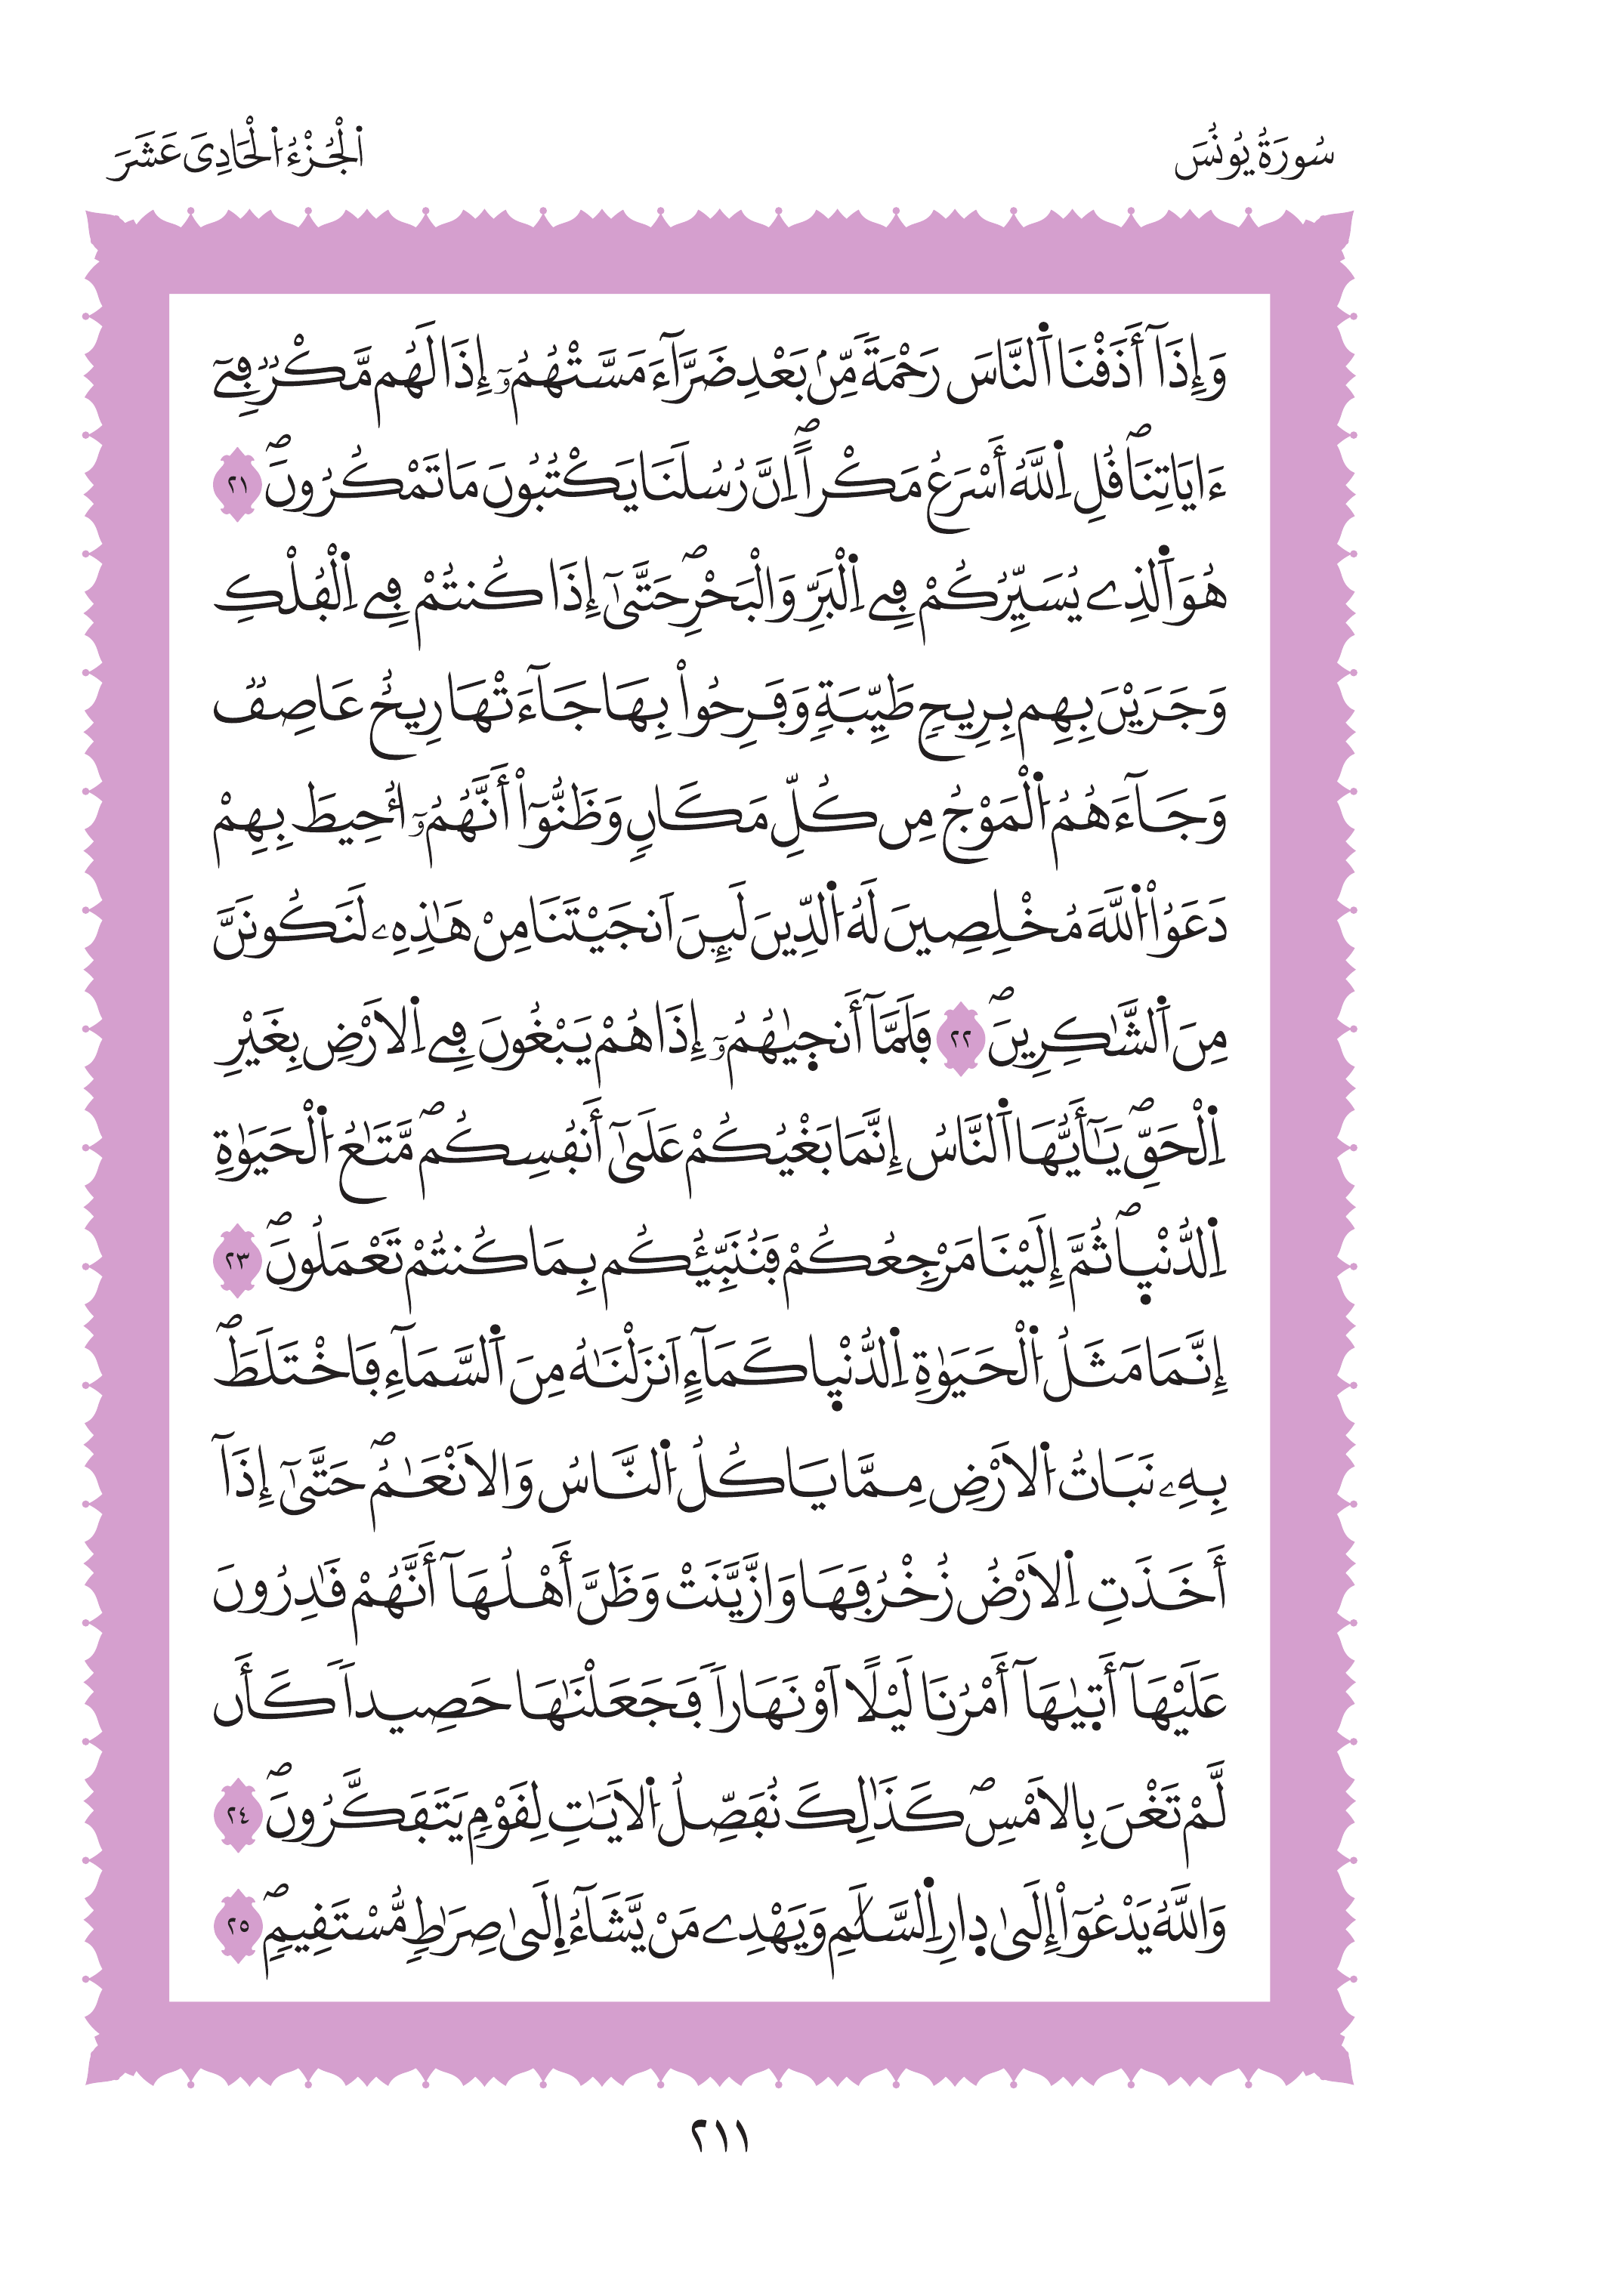 سُورَةُ يُونُسَ
اَ۬لْجُزْءُ اُ۬لْحَادِيَ عَشَرَ
وَإِذَآ أَذَقْنَا اَ۬لنَّاسَ رَحْمَةٗ مِّنۢ بَعْدِ ضَرَّآءَ مَسَّتْهُمُۥٓ إِذَا لَهُم مَّكْرٞ فِےٓ
ءَايَاتِنَاۖ قُلِ اِ۬للَّهُ أَسْرَعُ مَكْراًۖ اِنَّ رُسُلَنَا يَكْتُبُونَ مَا تَمْكُرُونَۖ ٢١
هُوَ اَ۬لذِے يُسَيِّرُكُمْ فِے اِ۬لْبَرِّ وَالْبَحْرِۖ حَتَّىٰٓ إِذَا كُنتُمْ فِے اِ۬لْفُلْكِ
وَجَرَيْنَ بِهِم بِرِيحٖ طَيِّبَةٖ وَفَرِحُواْ بِهَا جَآءَتْهَا رِيحٌ عَاصِفٞ
وَجَآءَهُمُ اُ۬لْمَوْجُ مِن كُلِّ مَكَانٖ وَظَنُّوٓاْ أَنَّهُمُۥٓ أُحِيطَ بِهِمْ
دَعَوُاْ اُ۬للَّهَ مُخْلِصِينَ لَهُ اُ۬لدِّينَ لَئِنَ اَنجَيْتَنَا مِنْ هَٰذِهِۦ لَنَكُونَنَّ
مِنَ اَ۬لشَّٰكِرِينَۖ ٢٢ فَلَمَّآ أَنج۪يٰهُمُۥٓ إِذَا هُمْ يَبْغُونَ فِے اِ۬لَارْضِ بِغَيْرِ
اِ۬لْحَقِّۖ يَٰٓأَيُّهَا اَ۬لنَّاسُ إِنَّمَا بَغْيُكُمْ عَلَىٰٓ أَنفُسِكُمۖ مَّتَٰعُ اُ۬لْحَيَوٰةِ
اِ۬لدُّنْي۪اۖ ثُمَّ إِلَيْنَا مَرْجِعُكُمْ فَنُنَبِّئُكُم بِمَا كُنتُمْ تَعْمَلُونَۖ ٢٣
إِنَّمَا مَثَلُ اُ۬لْحَيَوٰةِ اِ۬لدُّنْي۪ا كَمَآءٍ اَنزَلْنَٰهُ مِنَ اَ۬لسَّمَآءِ فَاخْتَلَطَۖ
بِهِۦ نَبَاتُ اُ۬لَارْضِ مِمَّا يَاكُلُ اُ۬لنَّاسُ وَالَانْعَٰمُۖ حَتَّىٰٓ إِذَآ
أَخَذَتِ اِ۬لَارْضُ زُخْرُفَهَا وَازَّيَّنَتْ وَظَنَّ أَهْلُهَآ أَنَّهُمْ قَٰدِرُونَ
عَلَيْهَآ أَت۪يٰهَآ أَمْرُنَا لَيْلًا اَوْ نَهَاراٗ فَجَعَلْنَٰهَا حَصِيداٗ كَأَن
لَّمْ تَغْنَ بِالَامْسِۖ كَذَٰلِكَ نُفَصِّلُ اُ۬لَايَٰتِ لِقَوْمٖ يَتَفَكَّرُونَۖ ٢٤
وَاللَّهُ يَدْعُوٓاْ إِلَىٰ د۪ارِ اِ۬لسَّلَٰمِ وَيَهْدِے مَنْ يَّشَآءُ اِ۪لَىٰ صِرَٰطٖ مُّسْتَقِيمٖۖ ٢٥
٢١١